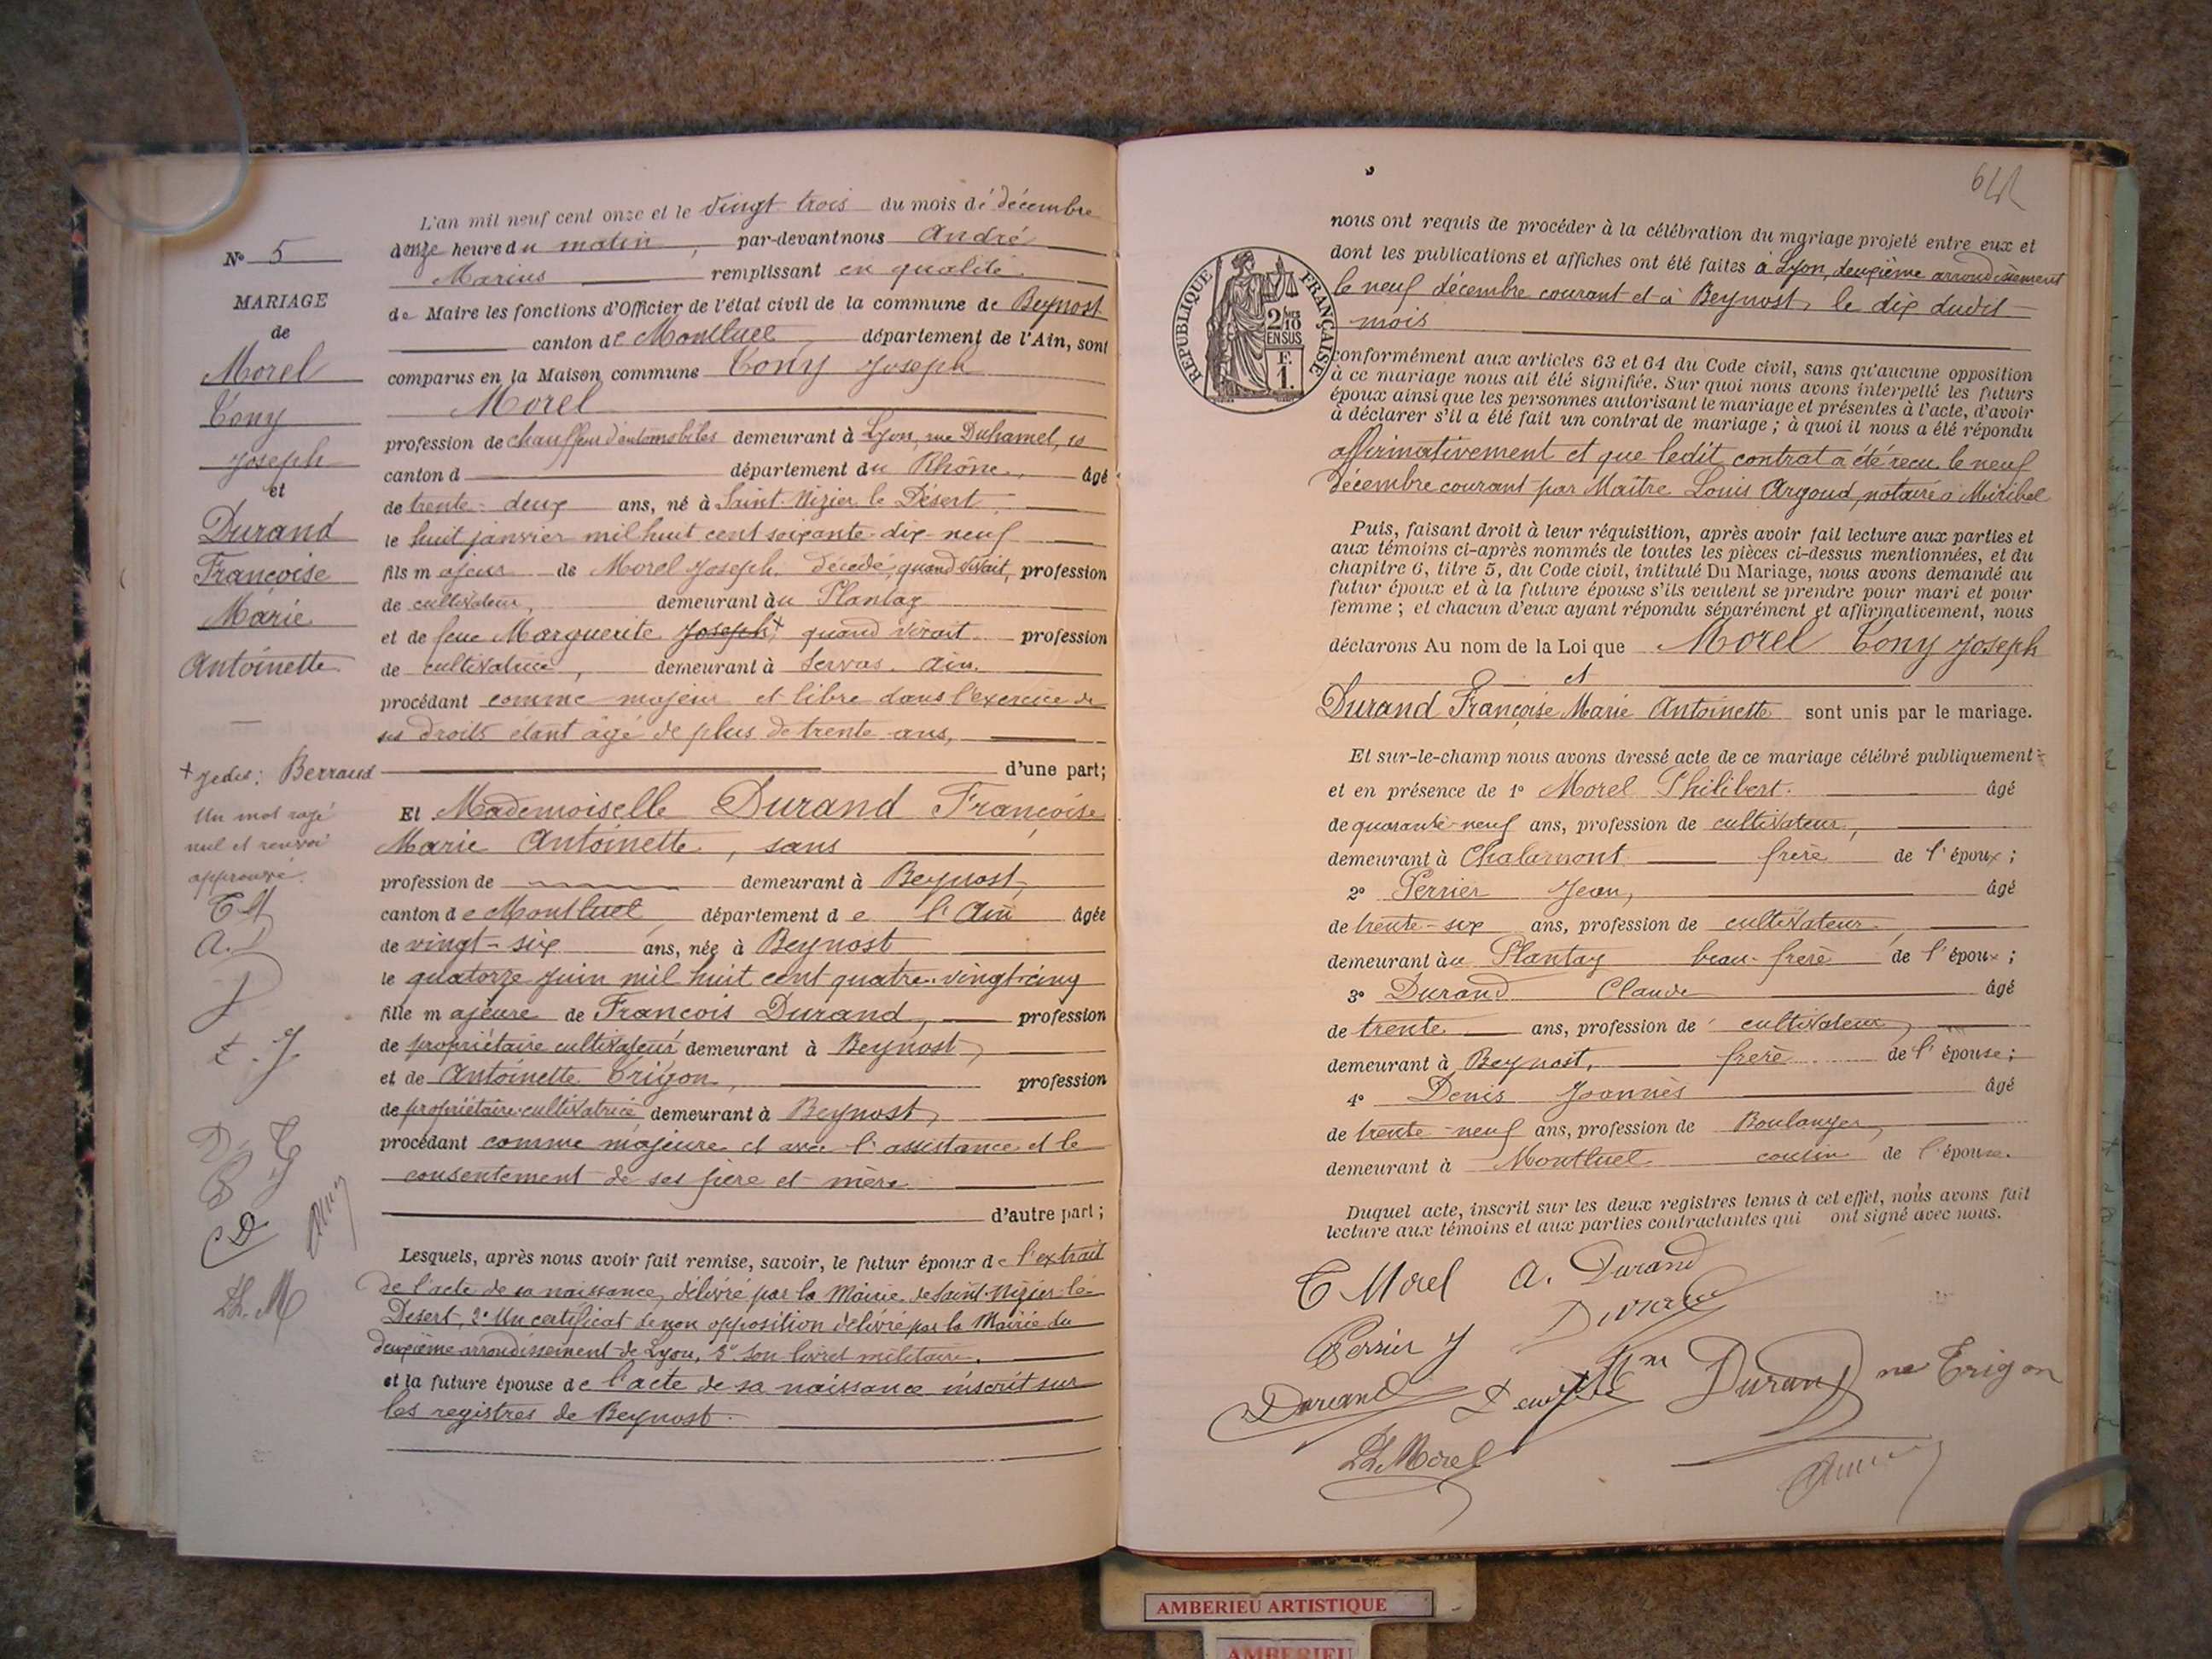 N° 5
MARIAGE
de
Morel
Tony
Joseph
et
Durand
Françoise
Marie
Antoinette
+ Jedes: Berraud
Un mot rayé
nul et renvoi
approuvé.
TM
A. D
D
P. J
D. T
C D
Ph. M
L'an mil neuf cent onze et le vingt trois du mois de décembre
onze heure du matin, par-devant nous André
Marius remplissant en qualité
de Maire les fonctions d'Officier de l'état civil de la commune de Beynost
canton de Montluel département de l'Ain, sont
comparus en la Maison commune Tony Joseph
Morel
profession de chauffeur d'automobiles demeurant à Lyon, rue Duhamel, 10
canton d département du Rhône, âgé
de trente-deux ans, né à Saint-Nizier le Désert
le huit janvier mil huit cent soixante-dix-neuf
fils majeur de Morel Joseph décédé, quand vivait, profession
de cultivateur, demeurant au Plantay
et de feue Marguerite Joseph + quand vivait profession
de cultivatrice, demeurant à Servas. Ain.
procédant comme majeur et libre dans l'exercice de
ses droits étant âgé de plus de trente ans,
d'une part;
Et Mademoiselle Durand Françoise
Marie Antoinette, sans
profession de demeurant à Beynost,
canton de Montluel département de l'Ain âgée
de vingt-six ans, née à Beynost
le quatorze juin mil huit cent quatre-vingt-cinq
fille majeure de François Durand, profession
de propriétaire cultivateur demeurant à Beynost,
et de Antoinette Trigon, profession
de propriétaire-cultivatrice demeurant à Beynost,
procédant comme majeure et avec l'assistance et le
consentement de ses père et mère
d'autre part;
Lesquels, après nous avoir fait remise, savoir, le futur époux de l'extrait
de l'acte de sa naissance, délivré par la Mairie de Saint-Nizier-le-
Désert, 2° Un certificat de non opposition délivré par la Mairie du
deuxième arrondissement de Lyon, 3° son livret militaire.
et la future épouse de l'acte de sa naissance inscrit sur
les registres de Beynost.
RÉPUBLIQUE FRANÇAISE
2/10
EN SUS
F.
1.
nous ont requis de procéder à la célébration du mariage projeté entre eux et
dont les publications et affiches ont été faites à Lyon, deuxième arrondissement
le neuf décembre courant et à Beynost, le dix dudit
mois
conformément aux articles 63 et 64 du Code civil, sans qu'aucune opposition
à ce mariage nous ait été signifiée. Sur quoi nous avons interpellé les futurs
époux ainsi que les personnes autorisant le mariage et présentes à l'acte, d'avoir
à déclarer s'il a été fait un contrat de mariage; à quoi il nous a été répondu
affirmativement et que ledit contrat a été reçu le neuf
Décembre courant par Maître Louis Argoud, notaire à Miribel
Puis, faisant droit à leur réquisition, après avoir fait lecture aux parties et
aux témoins ci-après nommés de toutes les pièces ci-dessus mentionnées, et du
chapitre 6, titre 5, du Code civil, intitulé Du Mariage, nous avons demandé au
futur époux et à la future épouse s'ils veulent se prendre pour mari et pour
femme; et chacun d'eux ayant répondu séparément et affirmativement, nous
déclarons Au nom de la Loi que Morel Tony Joseph
et
Durand Françoise Marie Antoinette sont unis par le mariage.
Et sur-le-champ nous avons dressé acte de ce mariage célébré publiquement
et en présence de 1° Morel Philibert. âgé
de quarante-neuf ans, profession de cultivateur,
demeurant à Chalamont frère de l'époux;
2° Perrier Jean, âgé
de trente-six ans, profession de cultivateur,
demeurant au Plantay beau-frère de l'époux;
3° Durand Claude âgé
de trente ans, profession de cultivateur,
demeurant à Beynost, frère de l'épouse;
4° Denis Joannès âgé
de trente-neuf ans, profession de Boulanger,
demeurant à Montluel cousin de l'épouse.
Duquel acte, inscrit sur les deux registres tenus à cet effet, nous avons fait
lecture aux témoins et aux parties contractantes qui ont signé avec nous.
T Morel A. Durand
Durand
Perrier J
Durand Me Durand ne Trigon
Ph Morel
AMBERIEU ARTISTIQUE
AMBERIEU